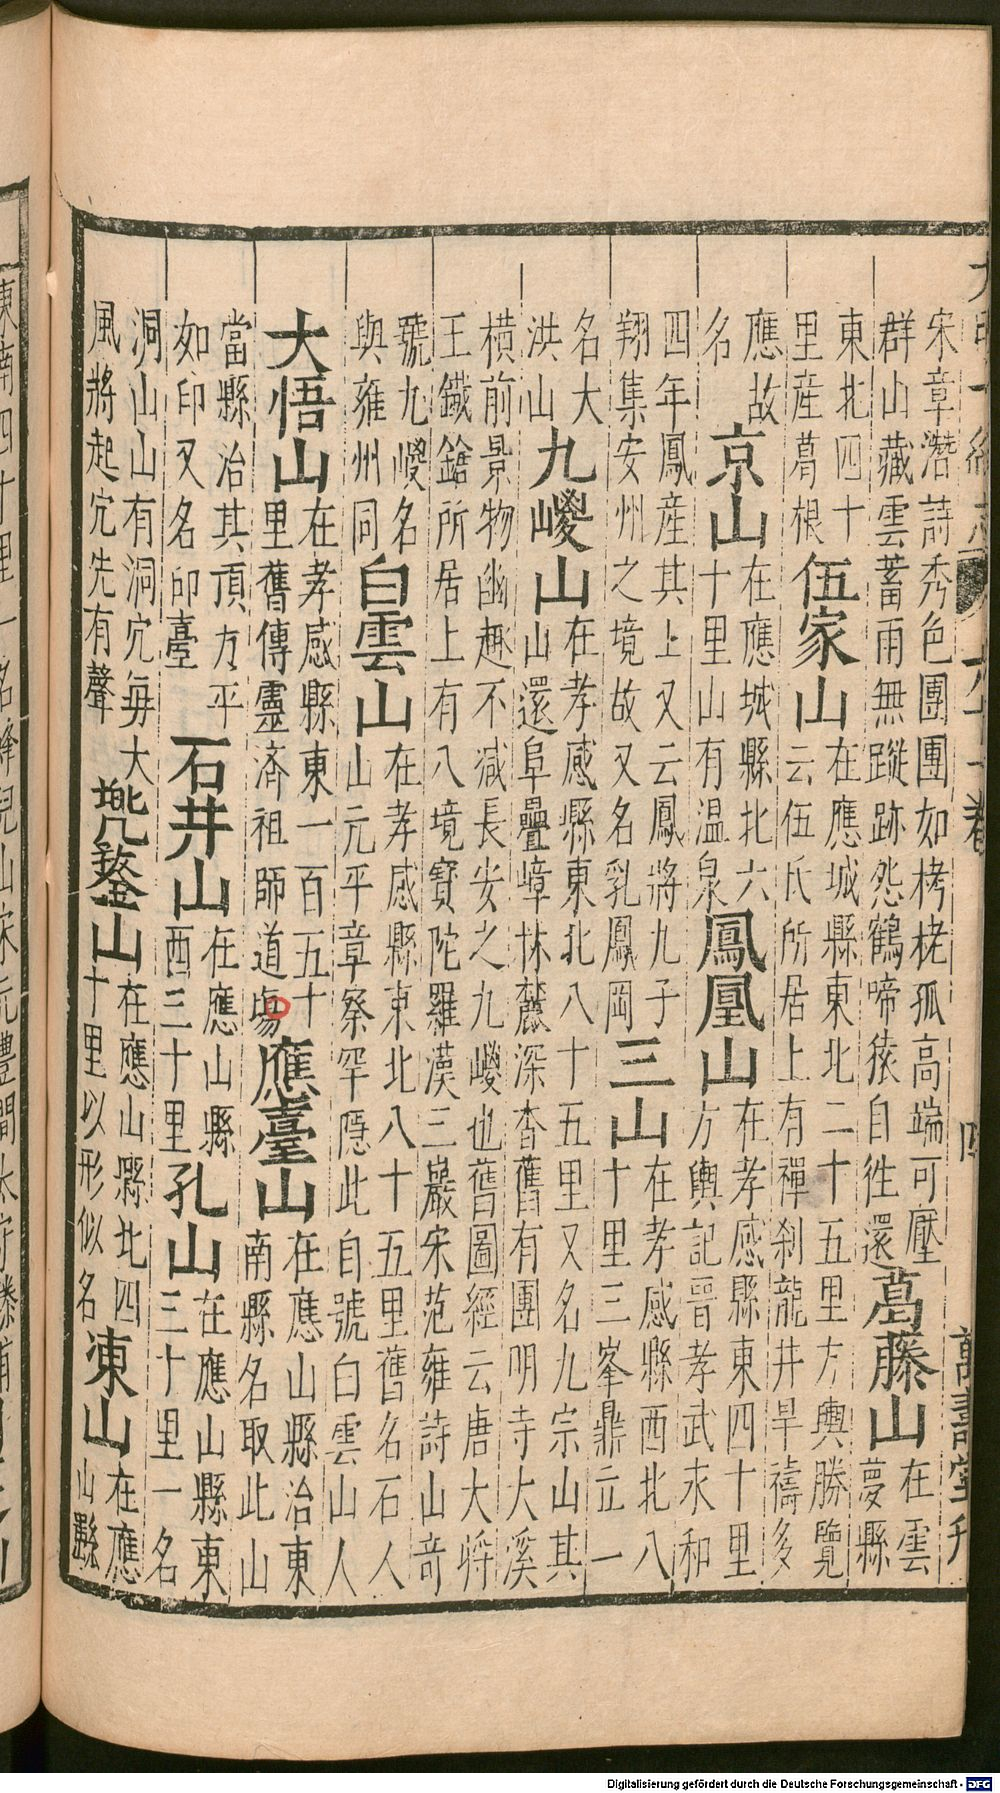 大明一統志 六十一卷 四 萬壽堂刊
宋章潛詩秀色團團如栲栳孤高端可壓
群山藏雲蓄雨無蹤跡怨鶴啼猿自往還
葛藤山
在雲
夢縣
東北四十
里産葛根
伍家山
在應城縣東北二十五里方輿勝覽
云伍氏所居上有禪刹龍井旱禱多
應故
名
京山
在應城縣北六
十里山有温泉
鳳凰山
在孝感縣東四十里
方輿記晉孝武求和
四年鳳産其上又云鳳將九子
翔集安州之境故又名乳鳳岡
三山
在孝感縣西北八
十里三峯鼎立一
名大
洪山
九嵕山
在孝感縣東北八十五里又名九宗山其
山還阜疊嶂林麓深杳舊有團明寺大溪
横前景物幽趣不減長安之九嵕也舊圖經云唐大將
王鐵鎗所居上有八境寳陀羅漢三巖宋范雍詩山奇
號九嵕名
與雍州同
白雲山
在孝感縣東北八十五里舊名石人
山元平章察罕隱此自號白雲山人
大悟山
在孝感縣東一百五十
里舊傳靈済祖師道塲
應臺山
在應山縣治東
南縣名取此山
當縣治其頂方平
如印又名印臺
石井山
在應山縣
西三十里
孔山
在應山縣東
三十里一名
洞山山有洞穴毎大
風將起穴先有聲
兠鍪山
在應山縣北四
十里以形似名
凍山
在應
山縣
東南四十里一名峰兒山宋元豐間太守滕甫
Digitalisierung gefördert durch die Deutsche Forschungsgemeinschaft - DFG